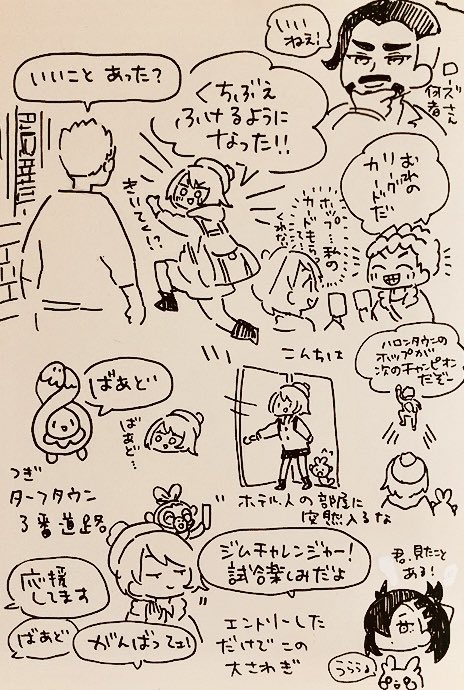 いい
ねえ!
ローズさん
何者
いいこと あった?
くちぶえ
ふけるように
なった!!
きいて!?
おれの
リーグ
カードだ
ホップ…私の
カードも
くれない
こんちは
ハロンタウンの
ホップが
次のチャンピオン
だぞー
ばあどい
ばあど…
つぎ
ターフタウン
3番道路
ホテル、人の部屋に
突然入るな
ジムチャレンジャー!
試合楽しみだよ
君、見たこと
ある!
応援
してます
ばあど
がんばってェ!
エントリーした
だけでこの
大さわぎ
うららら